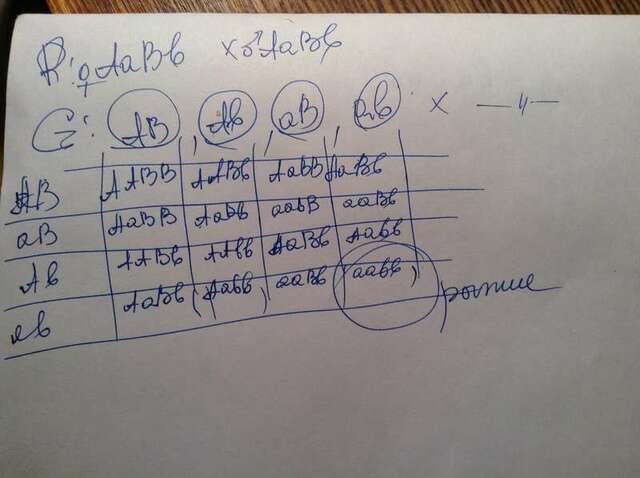 P: ♀AaBb x ♂AaBb
G: AB, Ab, aB, ab x —〃—
AB AABB AABb AaBB AaBb
aB AaBB AaBb aaBB aaBb
Ab AABb AAbb AaBb Aabb
ab AaBb (Aabb) aaBb (aabb) рыжие